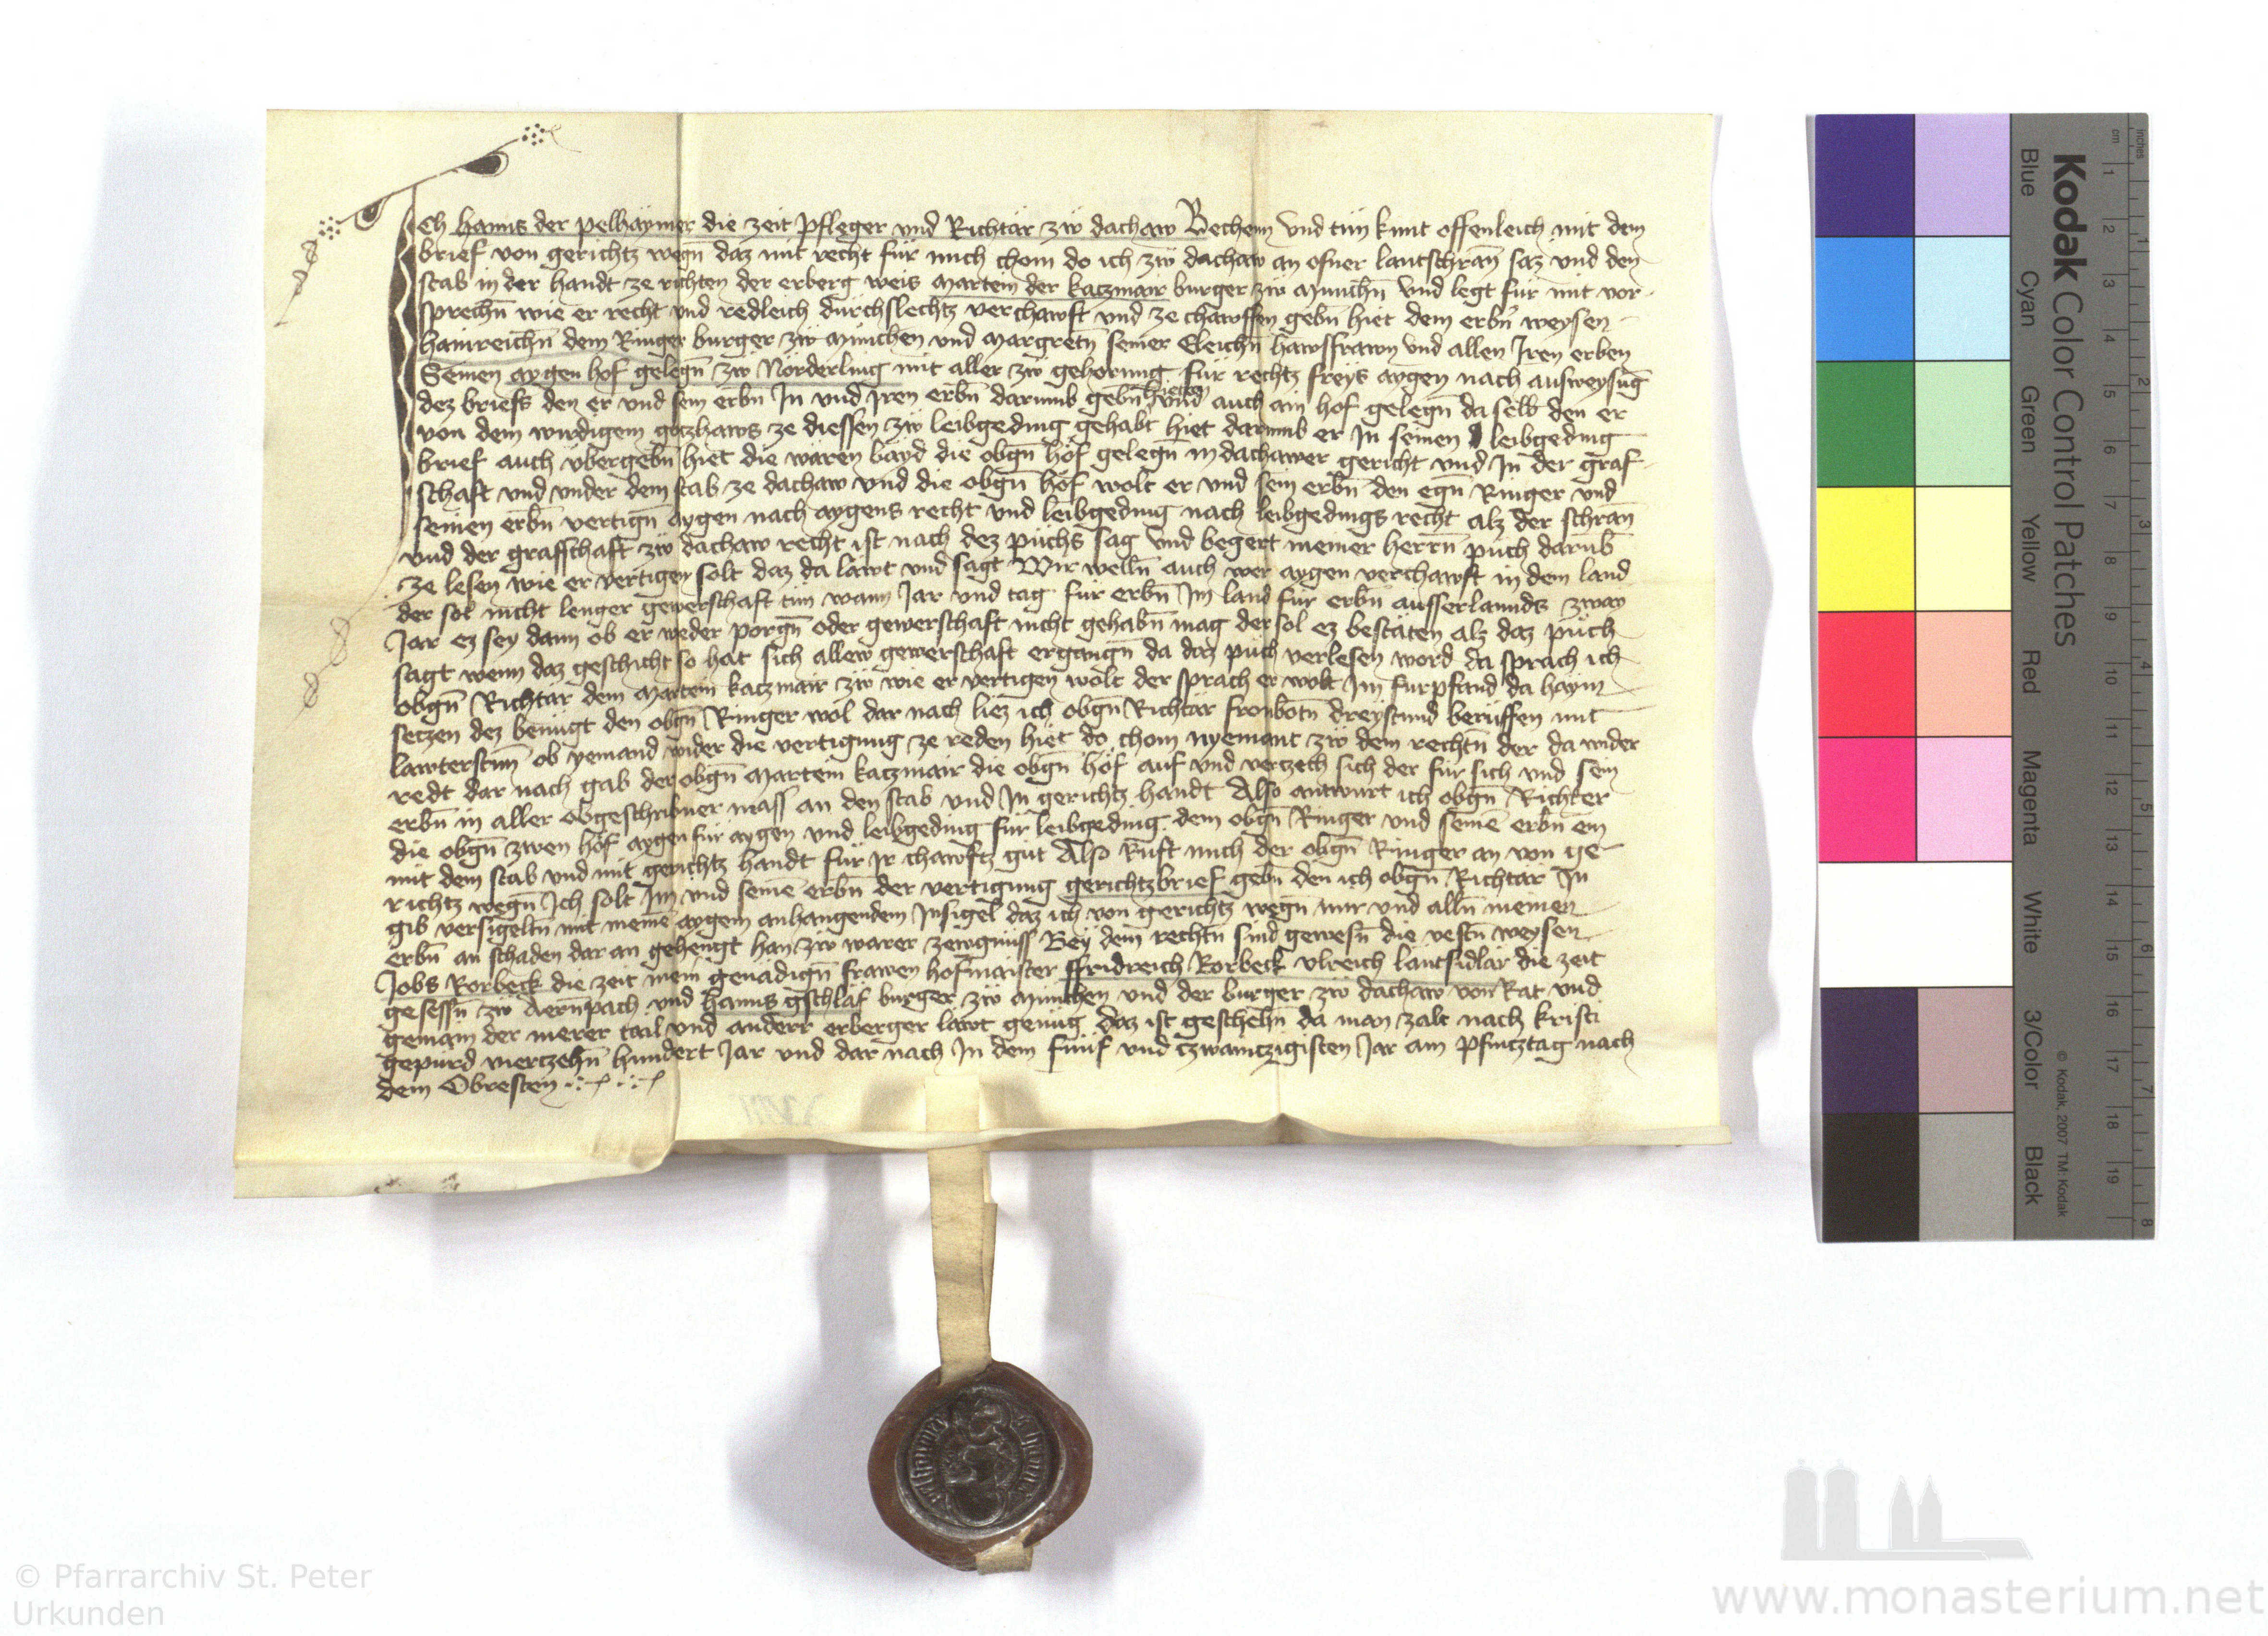 Ich Hanns der pelhaymer die zeit Pfleger vnd Richtär zw̎ dachaw Bechenn Vnd tün kunt offenleich mit dem
brief von gerichtz wegn̄ daz mit recht für mich chom do ich zw̎ dachaw an ofner lantschran̄ saz vnd den
stab in der handt ze richten der erberg weis Martein der kaczmair burger zw̎ Munichn̄ Vnd legt für mit vor
sprechn̄ wie er recht vnd redleich durchslechtz verchawft vnd ze chawffen gebn̄ hiet dem erbn̄ weysen
hainreichn̄ dem Ringer burger zw̎ München vnd Margretn̄ seiner Eleichn̄ hawsfrawn vnd allen Iren erben
Seinen aygen hof gelegn̄ zw̎ Nörderling mit aller zw̎ gehorung für rechtz freys aygen nach ausweysūg
dez briefs den er vnd sein erbn̄ In vnd Iren erbn̄ darumb gebn̄ hieten vnd auch ain hof gelegn̄ da selb den er
von dem wirdigem gotzhaws ze diessen zw̎ leibgeding gehabt hiet darumb er In seinen leibgeding
brief auch vbergebn̄ hiet die wären bayd die obgn̄ höf gelegn̄ in dachawer gericht vnd In der graf
schaft vnd vnder dem stab ze dachaw vnd die obgn̄ höf wolt er vnd sein erbn̄ den egn̄ Ringer vnd
seinen erbn̄ vertign̄ aygen nach aygens recht vnd leibgeding nach leibgedings recht alz der schran̄
vnd der grafschaft zw̎ dachaw recht ist nach dez püchs sag Vnd begert meiner herrn̄ püch darūb
ze lesen wie er vertigen solt daz da läwt vnd sagt Wir welln̄ auch wer aygen verchawft in dem land
der sol nicht lenger gewerschaft tün wann Jar vnd tag für erbn̄ Im land für erbn̄ ausserlannds zway
Jar ez sey dann ob er weder porgn̄ oder gewerschaft nicht gehabn̄ mag der sol ez bestäten alz daz püch
sagt wenn daz geschicht so hat sich allew gewerschaft ergangn̄ da daz püch verlesen word da sprach ich
obgn̄ Richtär dem Martein kaczmair zw̎ wie er vertigen wolt der sprach er wolt Im furpfand da haym
setzen dez benügt den obgn̄ Ringer wol dar nach liez ich obgn̄ Richtär fronbotn̄ dreystund berüffen mit
lawterstim̄ ob yemand wider die vertigung ze reden hiet do chom nyemant zw̎ dem rechtn̄ der da wider
redt dar nach gab der obgn̄ Martein kaczmair die obgn̄ höf auf vnd verzech sich der für sich vnd sein
erbn̄ in aller obgeschribner mass an den stab vnd In gerichtz handt Also antwurt ich obgn̄ Richter
die obgn̄ zwen höf aygen für aygen vnd leibgeding für leibgeding dem obgn̄ Ringer vnd seinē erbn̄ ein
mit dem stab vnd mit gerichtz handt für Ir chawftz güt Also Rüft mich der obgn̄ Ringer an von ge
richtz wegn̄ Ich solt Im vnd seinē erbn̄ der vertigung gerichtzbrief gebn̄ den ich obgn̄ Richtär In
gib versigeltn̄ mit meinē aygem anhangendem Insigel daz ich von gerichtz wegn̄ mir vnd alln̄ meinen
erbn̄ an schaden dar an gehengt han zw̎ warer zewgnüss Bey dem rechtn̄ sind gewesn̄ die vestn̄ weysen
Jobs Rorbeck die zeit mein genädign̄ frawen hofmaister ffridreich Rorbeck vlreich läntsidlär die zeit
gesessn̄ zw̎ Aernpach vnd Hanns gschläf burger zw̎ München vnd der burger zw̎ dachaw von Rat vnd
gemain der merer tail vnd anderr erberger läwt genüg daz ist geschehn̄ da man zalt nach kristi
gepurd vierczehn̄ hundert Jar vnd dar nach In dem fünf vnd czwainczigisten Jar am Pfincztag nach
dem Obresten
Kodak Color Control Patches
Blue Cyan Green Yellow Red Magenta White 3/Color Black
© Kodak, 2007 TM: Kodak
cm 1 2 3 4 5 6 7 8 9 10 11 12 13 14 15 16 17 18 19
inches 1 2 3 4 5 6 7 8
© Pfarrarchiv St. Peter
Urkunden
www.monasterium.net